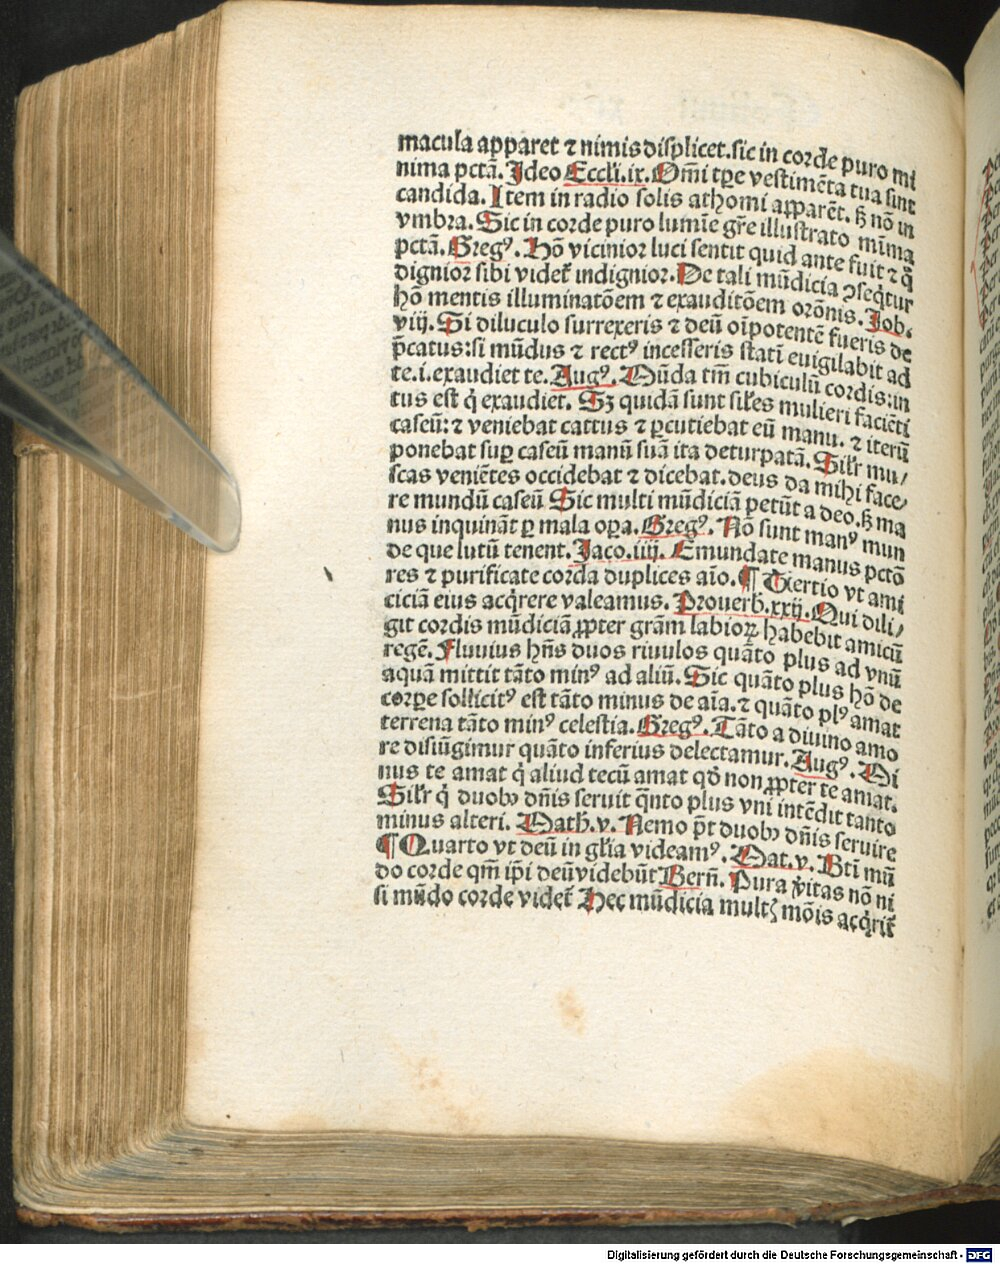 macula apparet ⁊ nimis displicet. sic in corde puro mi
nima pctā. Ideo Eccli.ix. Om̄i tꝑe vestimēta tua sint
candida. Item in radio solis athomi apparēt. ß nō in
vmbra. Sic in corde puro lumīe gr̄e illustrato mīma
pctā. Gregꝰ. Hō vicinior luci sentit quid ante fuit ⁊ q̄
dignior sibi videt᷑ indignior. De tali mūdicia ꝯseq̄tur
hō mentis illuminatōem ⁊ exauditōem orōnis. Job.
viij. Si diluculo surrexeris ⁊ deū oīpotentē fueris de
p̄catus: si mūdus ⁊ rectꝰ incesseris statī euigilabit ad
te.i.exaudiet te. Augꝰ. Mūda tm̄ cubiculū cordis: in
tus est q̇ exaudiet. Sꝫ quidā sunt sil̄es mulieri faciēti
caseū: ⁊ veniebat cattus ⁊ ꝑcutiebat eū manu. ⁊ iterū
ponebat suꝑ caseū manū suā ita deturpatā. Sil̄r mu/
scas veniētes occidebat ⁊ dicebat. deus da mihi face/
re mundū caseū Sic multi mūdiciā petūt a deo. ß ma
nus inquināt ꝑ mala oꝑa. Gregꝰ. Nō sunt manꝰ mun
de que lutū tenent. Jaco.iiij. Emundate manus pctō
res ⁊ purificate corda duplices aīo. ¶ Tertio vt ami
ciciā eius acq̇rere valeamus. Prouerb̄.xxij. Qui dili/
git cordis mūdiciā ꝓpter grām labioꝝ habebit amicū
regē. Fluuius hn̄s duos riuulos quāto plus ad vnū
aquā mittit tāto minꝰ ad aliū. Sic quāto plus hō de
corꝑe sollicitꝰ est tāto minus de aīa. ⁊ quāto plꝰ amat
terrena tāto minꝰ celestia. Gregꝰ. Tāto a diuino amo
re disiūgimur quāto inferius delectamur. Augꝰ. Mi
nus te amat q̇ aliud tecū amat qd̄ non ꝓpter te amat.
Sil̄r q̇ duobꝫ dn̄is seruit q̄nto plus vni intēdit tanto
minus alteri. Math.v. Nemo p̄t duobꝫ dn̄is seruire
¶ Quarto vt deū in gl̄ia videamꝰ. Mat.v. Bt̄i mū
do corde qm̄ ip̄i deū videbūt Bern̄. Pura v̄itas nō ni
si mūdo corde videt᷑ Hec mūdicia multꝭ mōis acq̇rit᷑
Digitalisierung gefördert durch die Deutsche Forschungsgemeinschaft - DFG